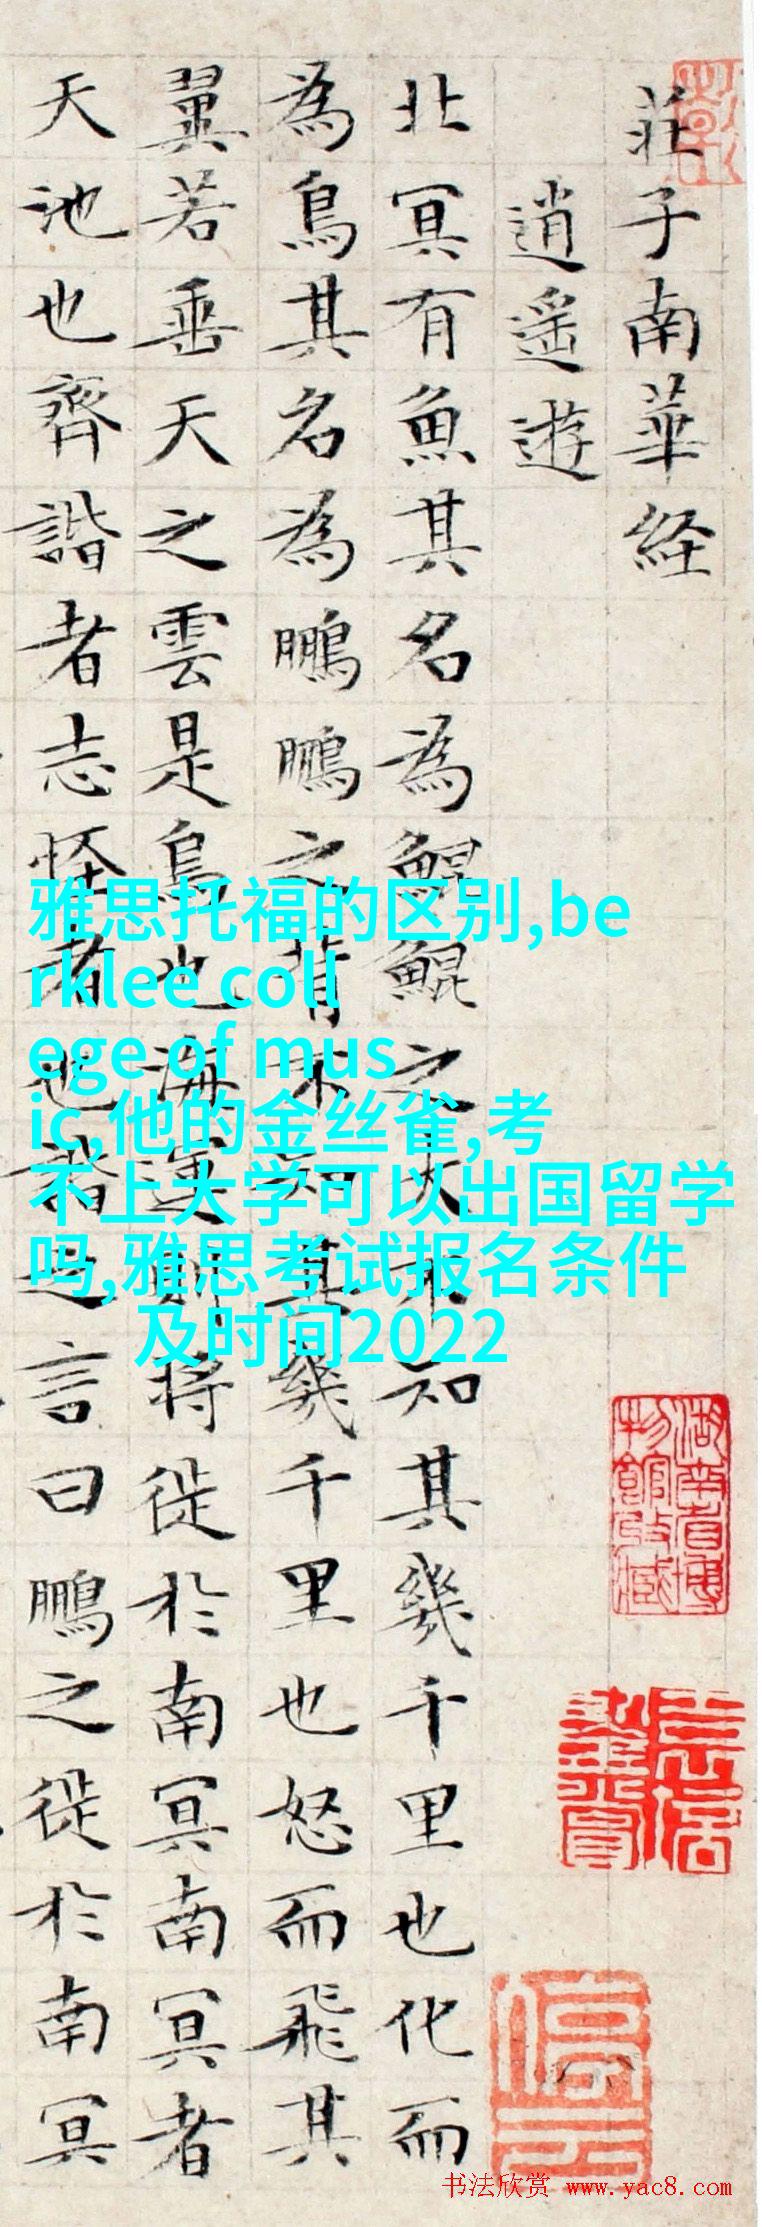 莊子南華経
逍遥遊
北冥有魚其名為鯤鯤之大不知其幾千里也化而
為鳥其名為鵬鵬之背不知其幾千里也怒而飛其
翼若垂天之雲是鳥也海運則将徙於南冥南冥者
天池也齊諧者志怪者也諧之言曰鵬之徙於南冥
雅思托福的区别,be
rklee coll
ege of mus
ic,他的金丝雀,考
不上大学可以出国留学
吗,雅思考试报名条件
及时间2022
湖南省博
物館收藏
停云
书法欣赏 www.yac8.com